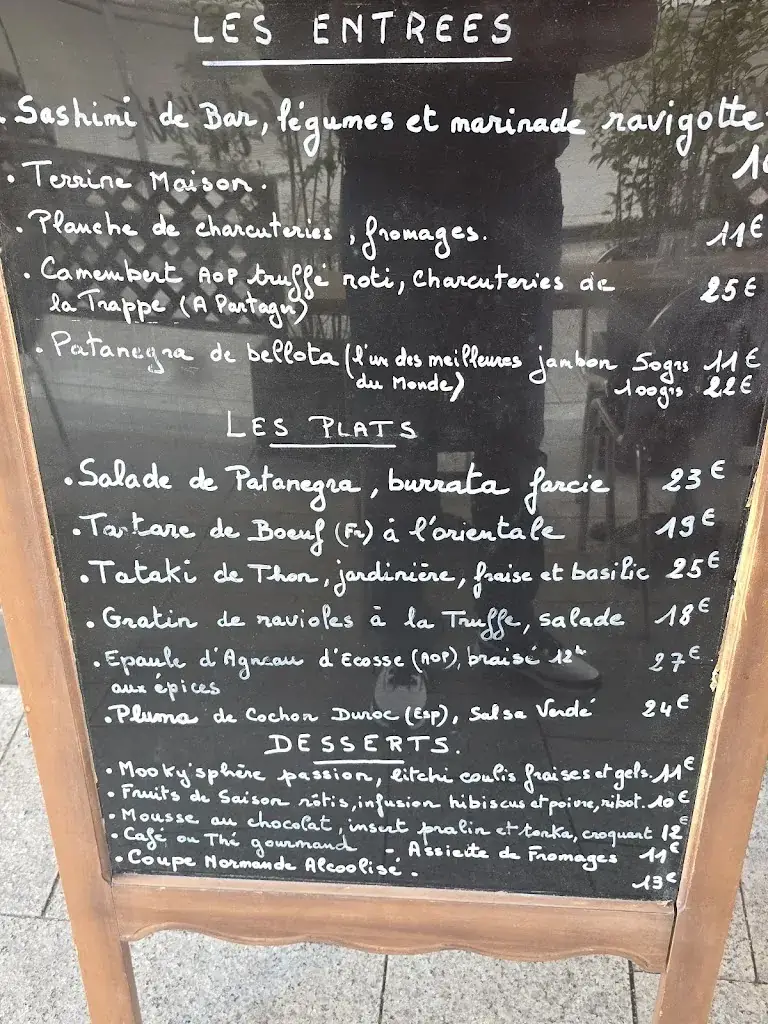 LES ENTREES
. Sashimi de Bar, légumes et marinade ravigotte
. Terrine Maison.
. Planche de charcuteries, fromages. 11€
. Camembert AOP truffé roti, Charcuteries de
la Trappe (A Partager) 25€
. Patanegra de bellota (l'un des meilleures jambon 50grs 11€
du Monde) 100grs 22€
LES PLATS
. Salade de Patanegra, burrata farcie 23€
. Tartare de Boeuf (Fr) à l'orientale 19€
. Tataki de Thon, jardinière, fraise et basilic 25€
. Gratin de ravioles à la Truffe, salade 18€
. Epaule d'Agneau d'Ecosse (AOP), braisé 12h 27€
aux épices
. Pluma de Cochon Duroc (Esp), Salsa Verdé 24€
DESSERTS.
. Mooky'sphère passion, litchi coulis fraises et gels. 11€
. Fruits de Saison rôtis, infusion hibiscus et poivre, 10€
. Mousse au chocolat, insert pralin et tonka, croquant 12€
. Café ou Thé gourmand - Assiette de Fromages 11€
. Coupe Normande Alcoolisé. 13€